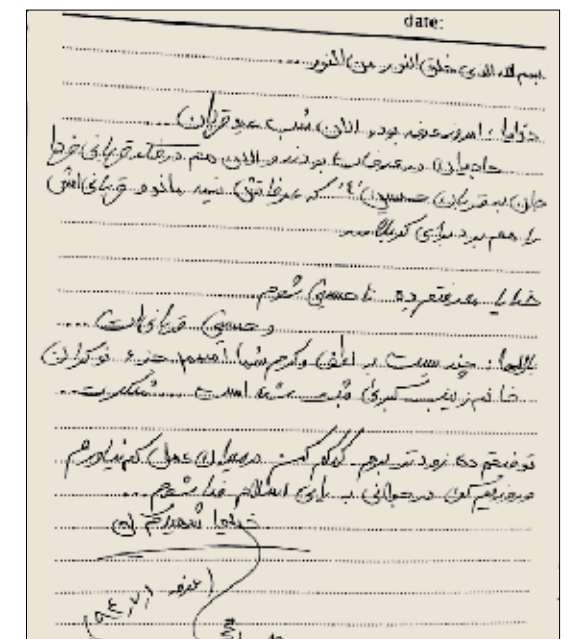 date:
بسم الله الذی خلق النور من النور....
خدایا: امروز عرفه بود و الان شب عید قربان
حاجیان در عرفات بودند و الان هم در فکر قربانی فردا
جان به قربان حسین "ع" که عرفاتش نیمه ماند و قربانی‌اش
را هم برد برای کربلا....
خدایا معرفتم ده تا حسینی شوم
و حسینی قربانی‌ات....
بارالها: چند است بر لطف و کرم شما اسمم جزء نوکران
خانم زینب کبری ثبت شده است.... شکرت....
توفیقم ده زودتر بروم کمکم کن در میدان عمل کم نیاورم
کن در جوانی به پای اسلام فدا شوم....
خدایا شهیدم کن
(عرفه ۹۴,۷,۱